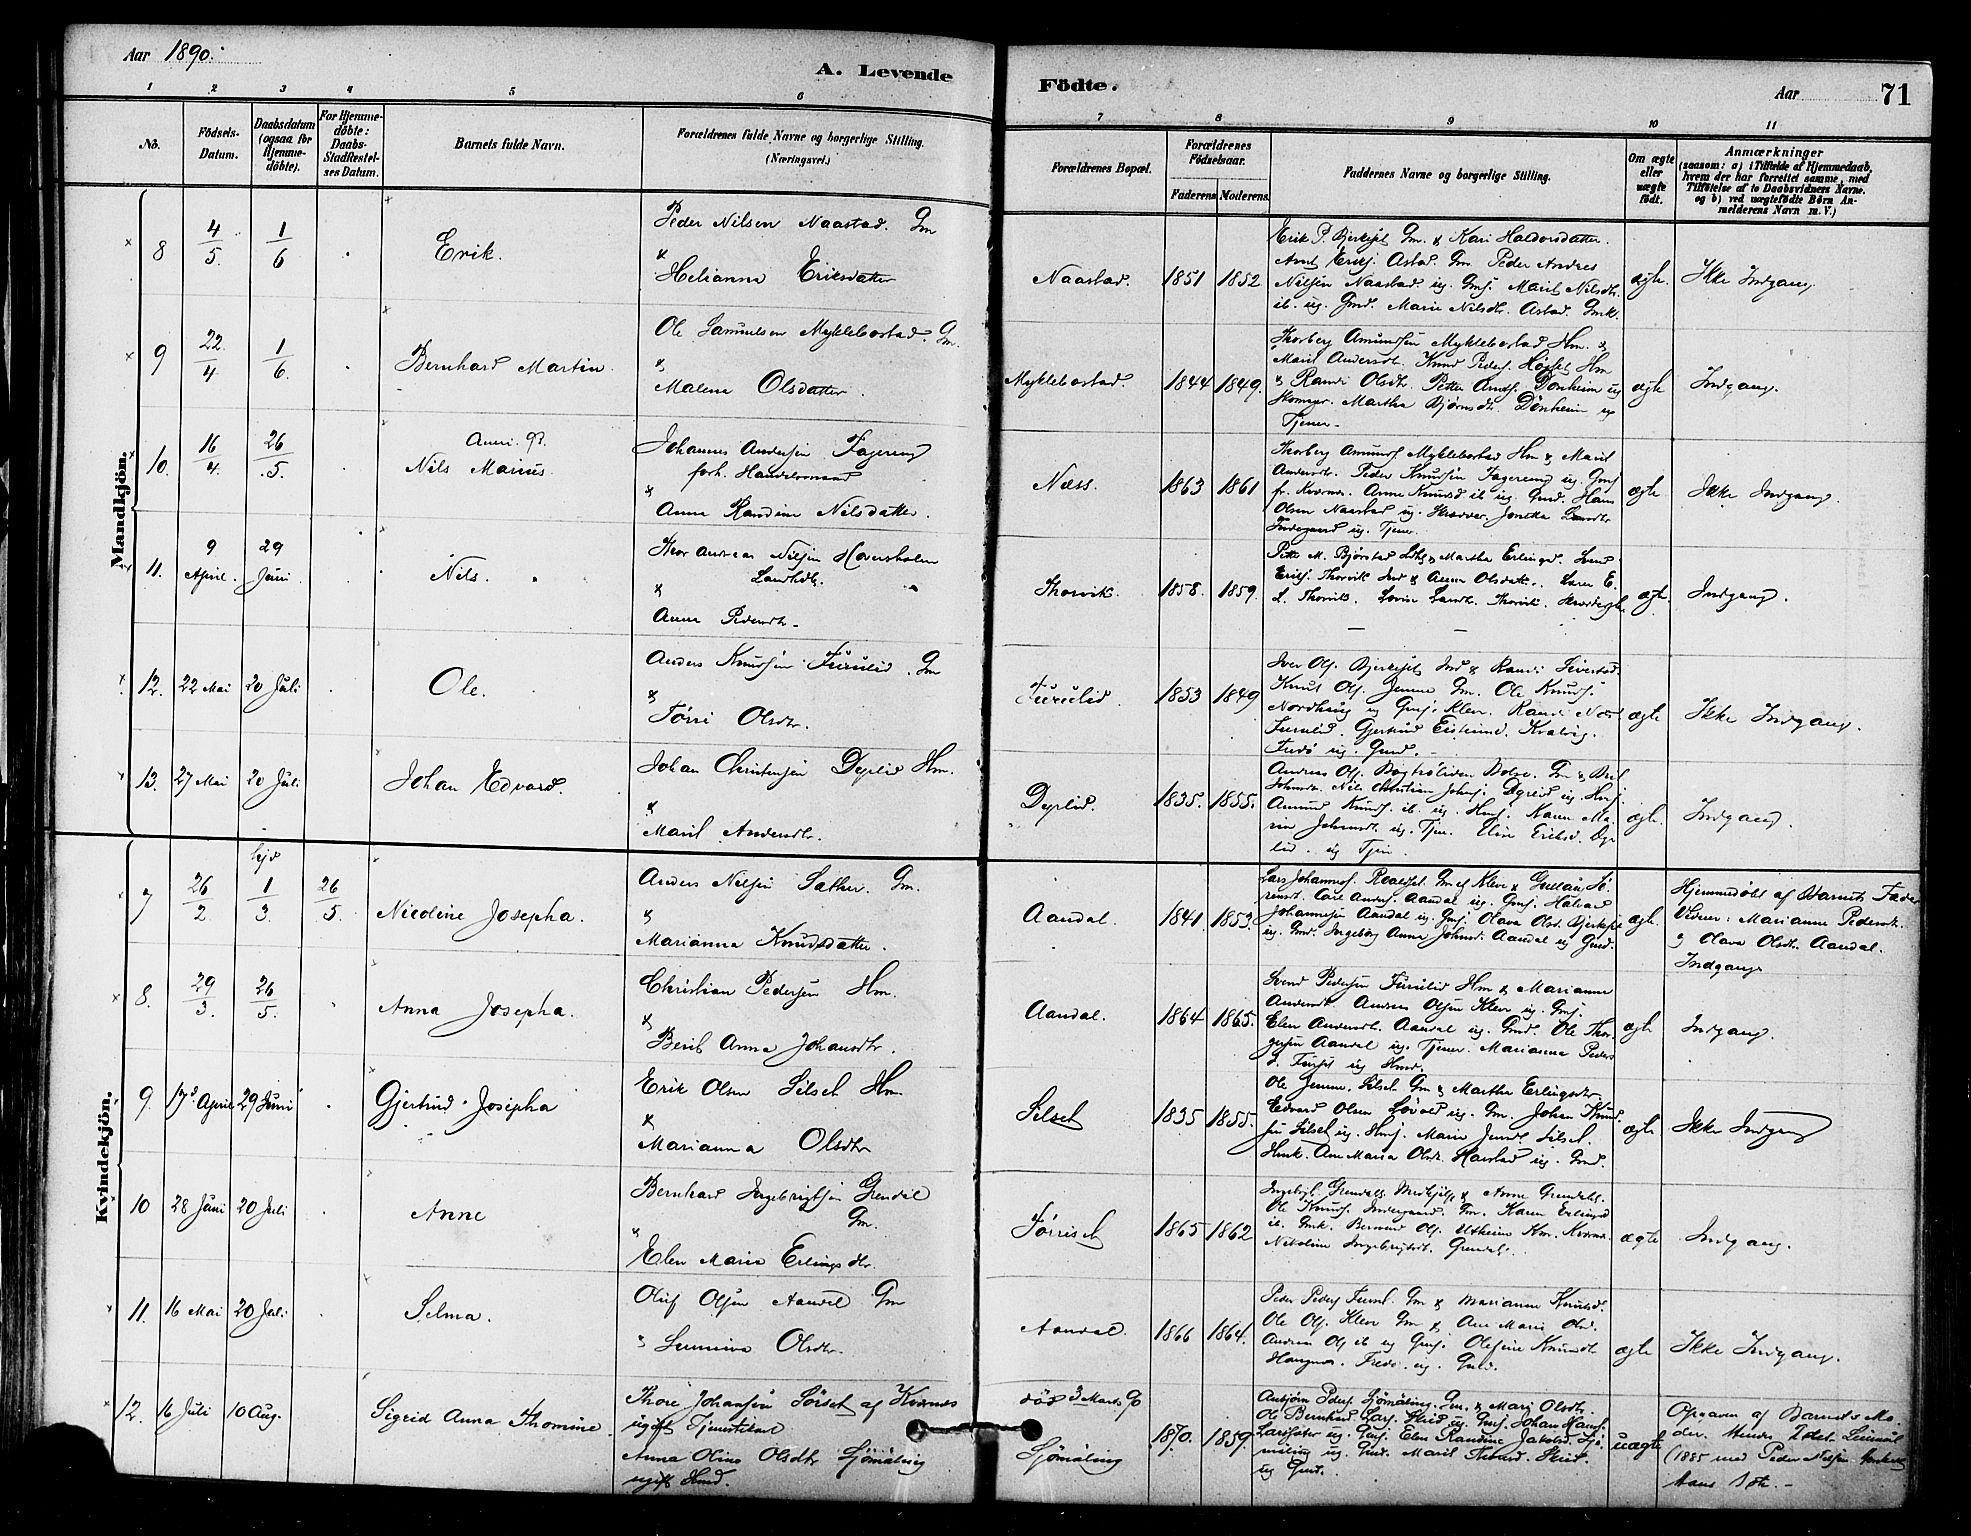 Aar 1890.
A. Levende
Födte.
Aar
71
1 2 3 4 5 6
7 8 9 10 11
No.
Födsels-
Datum.
Daabsdatum
(ogsaa for
Hjemme-
döbte).
For Hjemme-
döbte:
Daabs-
Stadfæstel-
ses Datum.
Barnets fulde Navn.
Forældrenes fulde Navne og borgerlige Stilling.
(Næringsvei.)
Forældrenes Bopæl.
Forældrenes
Födselsaar.
Faderens Moderens.
Faddernes Navne og borgerlige Stilling.
Om ægte
eller
uægte
födt.
Anmærkninger
(saasom: a) i Tilfælde af Hjemmedaab,
hvem der har forrettet samme, med
Tilföielse af to Daabsvidners Navne.
og b) ved uægtefödte Börn An-
melderens Navn m. V.)
Mandkjön.
8 4/5 1/6 Erik.
Peder Nilsen Naastad. Gm
&
Helianna Eriksdatter
Naastad. 1851 1852
Erik P. Bjerkeset Gm. & Kari Haldorsdatter.
Arnt Eriks. Astad. Gm Peder Andreas
Nilsen Naastad ug. Gms. Marit Nilsdtr.
ib. ug. Gmd. Marie Nilsdtr. Astad. Gmk.
ægte. Ikke Indgang.
9 22/4 1/6. Bernhard Martin.
Ole Samuelsen Myklebostad. Gm.
&
Malena Olsdatter.
Myklebostad. 1844 1849.
Thorberg Amundsen Myklebostad Hm. &
Marit Andersdtr. Knud Peders.
& Randi Olsdtr. Petter Dönheim ug
Martha Björnsdtr. Dönheim ug
Tjener.
ægte Indgang.
10. 16/4. 26/5. Nils Marius.
Johannes Andersen Fagereng
forh. Handelsmand
&
Anna Randine Nilsdatter.
Næss. 1863 1861
Thorberg Amunds. Myklebostad Hm & Marit
Andersdtr. Peder Knudsen Fagereng ug. Gmf
fr. Kvernes. Anne Knudsd ib ug. Gmd. Hans
Olsen Naastad ug. Skrædder.
ug. Tjener.
ægte Ikke Indgang.
11. 9 April. 29 Juni Nils.
Thor Andreas Nilsen
Landh.
&
Anna Pedersdtr.
Thorvik. 1858. 1859.
Petter M. Björstad & Martha Erlingsd.
Eriks. Thorvik & Anne Olsdatter.
Thorvik. Thorvik.
ægte. Indgang.
12. 22 Mai 20 Juli Ole.
Anders Knudsen Furulid. Gm
&
Törri Olsdtr.
Furulid 1853 1849
Iver Ols. Bjerkeset & Randi Sivertsd.
Knut Ols. Jenme Gm. Ole Knuds.
Nordhaug ug Gms. Klev. Randi
Furulid. Gjertrud
Fredö ug. Gmd.
ægte Ikke Indgang.
13. 27 Mai 20 Juli Johan Edvard.
Johan Christensen Dyplid Hm.
&
Marit Andersdtr.
Dyplid. 1835. 1855.
Andreas Ols.
Nils Christian Johans. Dyplid ug. Hms.
Amund Knuds. ib. ug. Hms.
Johansdt. ug. Tjen. Eline Eriksd. Dyp
lid. ug Tjen.
ægte. Indgang.
Kvindekjön.
7 26/2 hjd 1/3. 26/5. Nicoline Josepha.
Anders Nilsen Sæther. Gm.
&
Marianna Knudsdatter.
Aandal. 1841 1853.
Lars Johannes. Roaldset. Gm af Klev &
Aandal ug. Gms. Halvar
Johannesen Aandal ug. Gms. Olava Olsd. Bjerkeset
ug. Gmd. Ingeborg Anna Johansd. Aandal ug Gmd.
ægte.
Hjemmedöbt af Barnets Fader
Vidner: Marianne Pedersdt.
og Olava Olsdt. Aandal.
Indgang
8. 29/3. 26/5. Anna Josepha.
Christian Pedersen Hm.
&
Berit Anna Johansdtr.
Aandal. 1864 1865.
Svend Pedersen Furulid Hm & Marianne
Andersdt. Anders Olsen Klev ug. Gms.
Elen Andersdt. Aandal ug. Gmd. Ole Thor-
gersen Aandal ug. Tjener. Marianna Peders
d. Furset ug Hmd.
ægte Indgang.
9. 17d April 29 Juni Gjertrud Josepha
Erik Olsen Silset Hm.
&
Marianna Olsdtr
Silset 1835 1855.
Ole Jenme. Silset Gm & Martha Erlingsdtr.
Edvard Olsen Lövold ug. Gm. Johan Knud
sen Silset ug. Hms. Marie Jensdt. Silset
Hmk. Ane Maria Olsdt. Harstad ug. Gmd.
ægte Ikke Indgang
10 28 Juni 20 Juli Anne
Bernhard Ingebrigtsen Grendal
Gm.
&
Elen Marie Erlingsdtr.
Törriset 1865 1862
& Anne Grendal.
Ole Knuds. Indergaard. Gm. Karen Erlingsd
ib. Gmk. Bernard Ols. Utheim Hm. Kvernes.
Nikoline Ingebrigtsdt. Grendal.
ægte Indgang.
11. 16 Mai 20 Juli Selma.
Oluf Olsen Aandal Gm
& Sunniva Olsdtr.
Aandal. 1866 1864.
Peder Peders Gm & Marianne Knudsd.
Ole Ols. Klev Gm & Ane Marie Olsd.
Andrea Ols ib ug Gms. Olefine Knudsdt
Hangnes. Fredö. ug. Gmd.
ægte Ikke Indgang.
12. 16 Juli 10 Aug. Sigrid Anna Thomine.
Thore Johansen Sörset af Kvernes
ugift Tjenestekarl
Anna Oline Olsdtr Sjömæling
ugift Hmd.
död 3 Marts 90
Sjömæling 1870. 1859.
Ansjörn Peders. Sjömæling. Gm. & Mari Olsdtr.
Ole Bernhard Lars. Skrid ug. Gms. Johan Hans.
ug. Gms. Elen Randine Jakobsd. Sjö
mæling ug. Gmd. Marit
ug Gmd.
uægte
Opgaven af Barnets Mo-
der. Hendes 2det
(1885 med Peder Nilsen
hans 1ste.